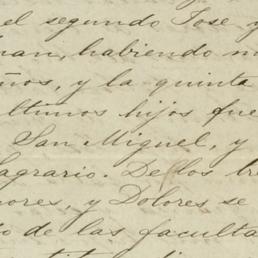 el segundo Jose, y
habiendo
y la quinta
ultimos hijos fue
San Miguel, y
Sagrario. De los tre
nores, y Dolores se
de las faculta